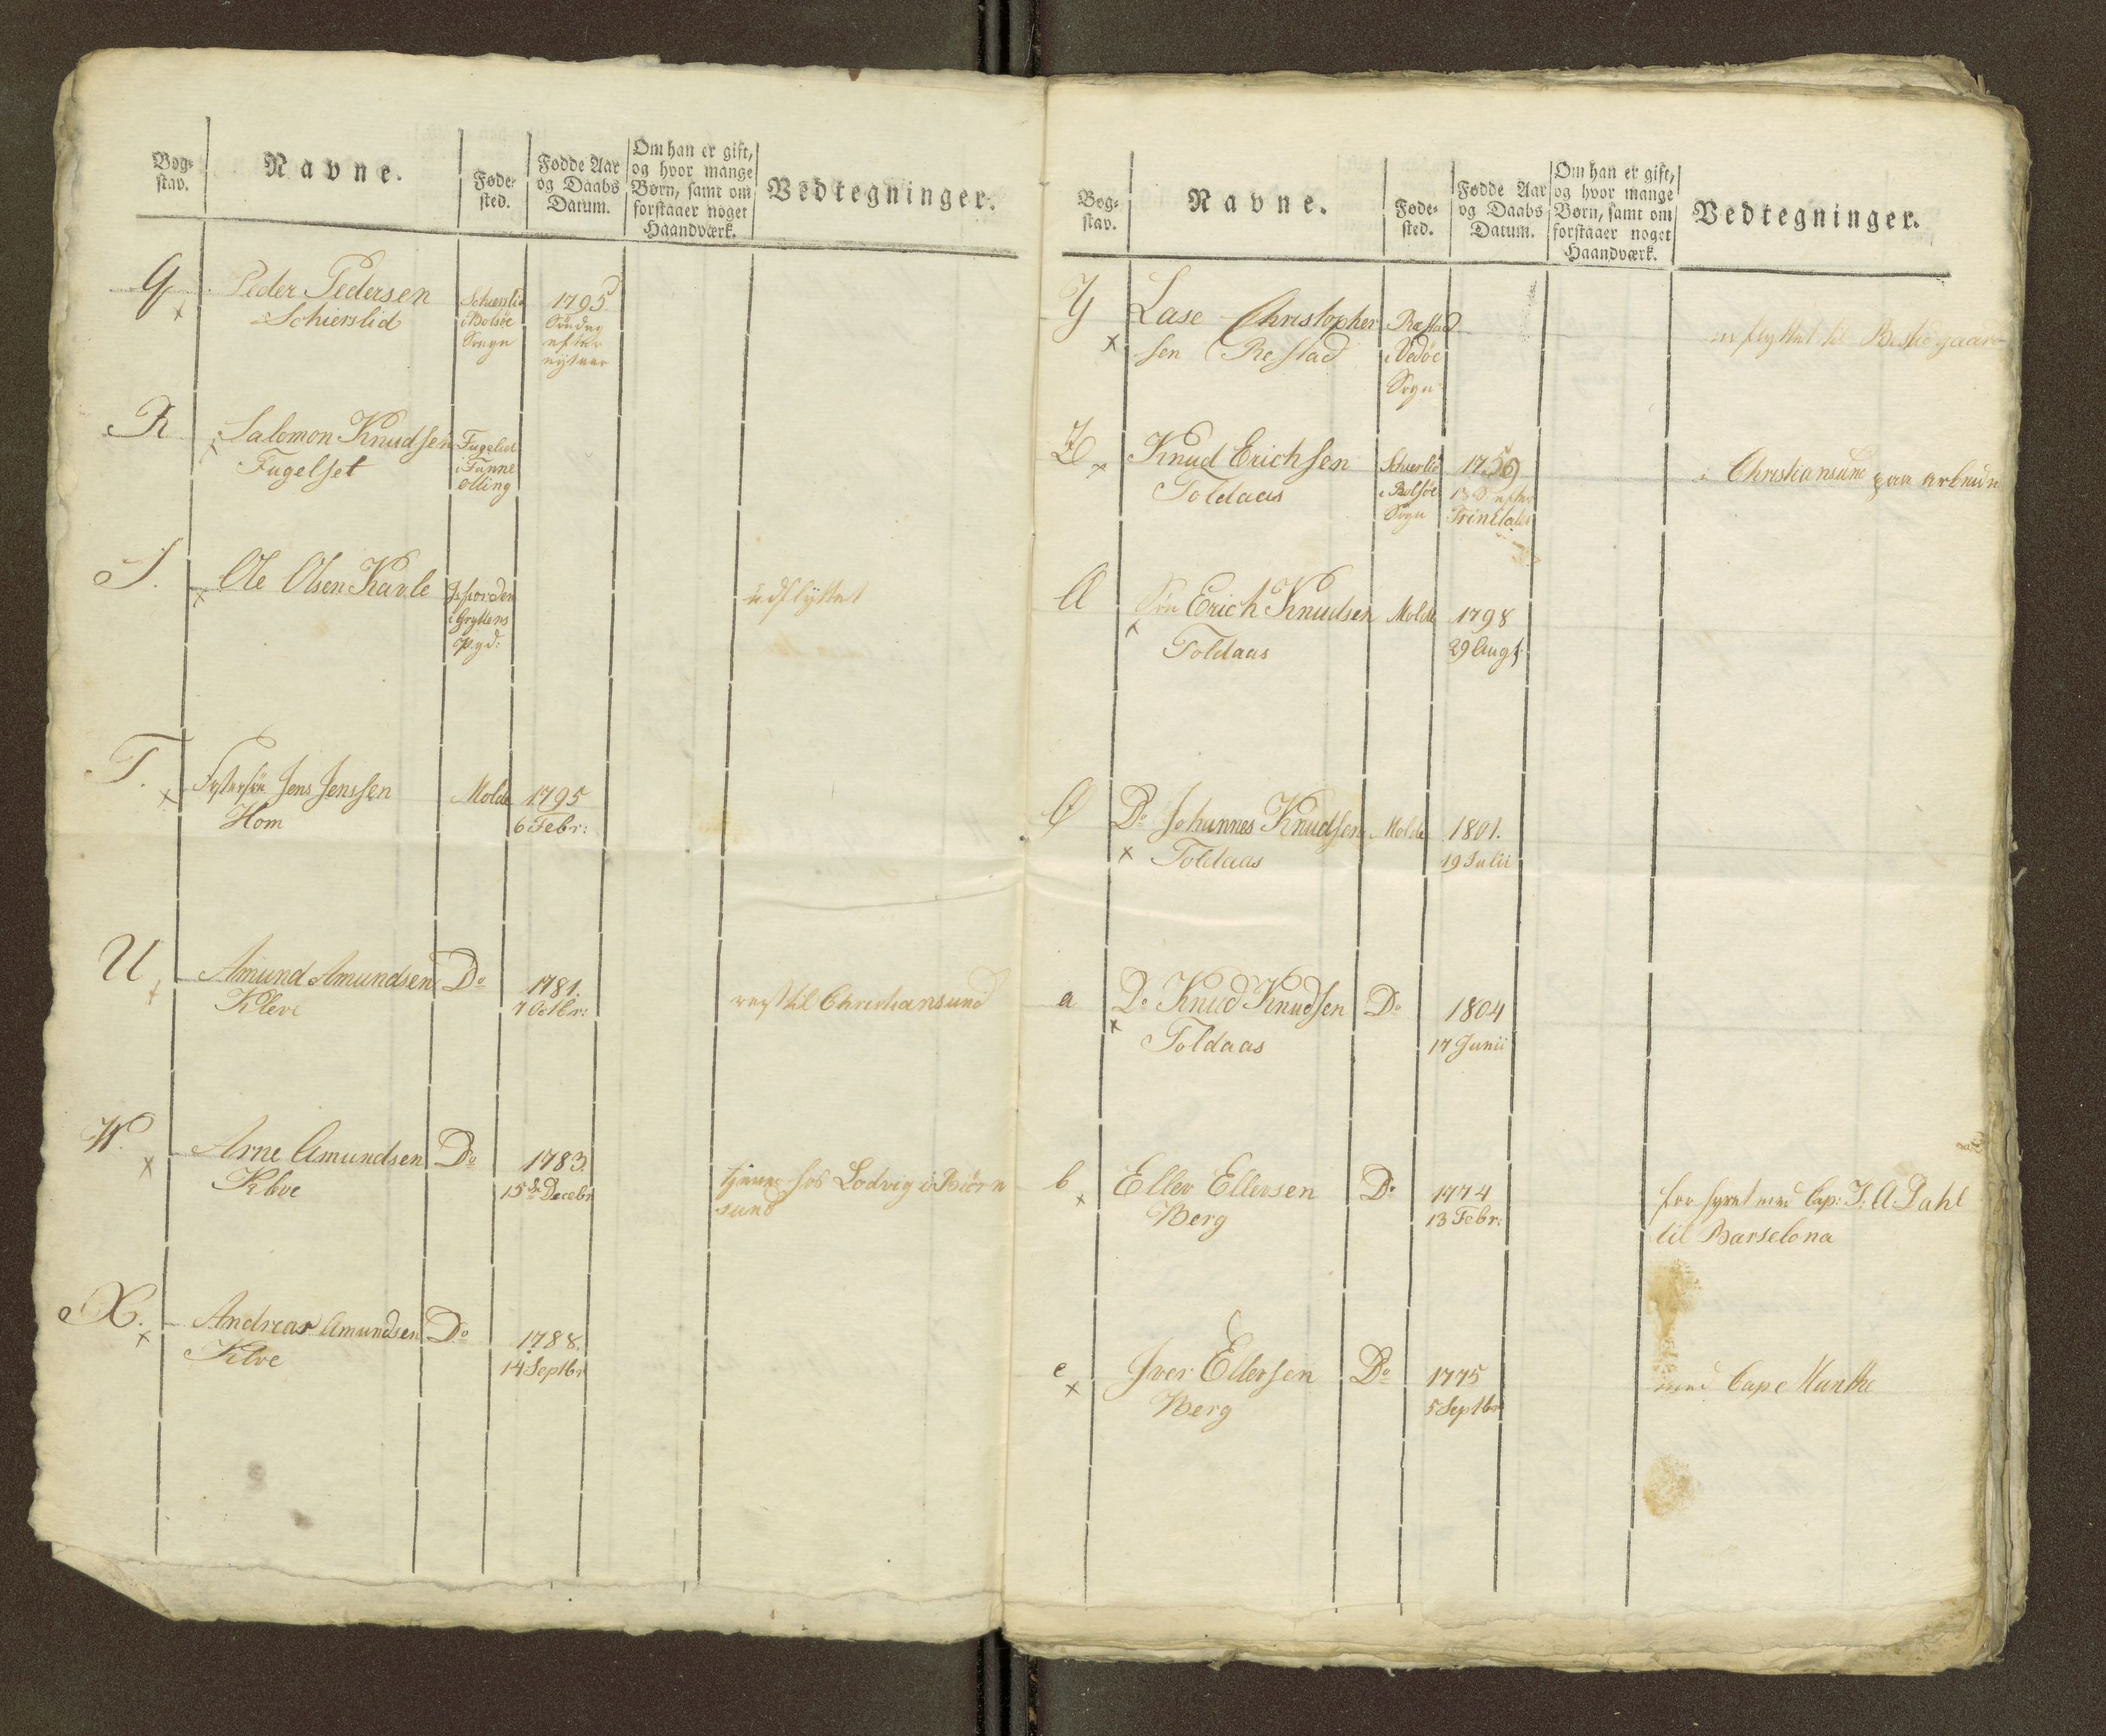 Bog-
stav.
Navne.
Føde-
sted.
Fødde Aar
og Daabs
Datum.
Om han er gift,
og hvor mange
Børn, samt om
forstaaer noget
Haandværk.
Vedtegninger.
Q
x
Peder Pedersen
Schierslid
Schierslid
i Bolsöe
Sogn
1795
Söndag
efter
nytaar
R
x
Salomon Knudsen
Fugelset
Fugelset
i Fanne
otting
S.
x
Ole Olsen Kavle
i Gryttens
Pgd:
udflyttet
T.
x
Jens Jenssen
Hom
Molde
1795
6 Febr:
U
x
Amund Amundsen
Kleve
Do
1781.
7 Octbr:
reyst til Christiansund
W.
x
Arne Amundsen
Kleve
Do
1783.
15de Decebr
tjener hos Lodvig i Biörn
sund
X.
x
Andreas Amundsen
Klve
Do
1788.
14 Septbr
Bog-
stav.
Navne.
Føde-
sted.
Fødde Aar
og Daabs
Datum.
Om han er gift,
og hvor mange
Børn, samt om
forstaaer noget
Haandværk.
Vedtegninger.
Y
x
Lase Christopher
sen Restad
Ræstad
i Vedöe
Sogn
er flyttet til
Z
x
Knud Erichsen
Toldaas
Schierlid
i Bolsöe
Sogn
1756
13 S. efter
Trinitatis
i Christiansund paa arbeide
A
x
Sön Erich Knudsen
Toldaas
Molde
1798
29 Augt:
Do Johannes Knudsen
x
Toldaas
Molde
1801.
19 Julii
a
x
Do Knud Knudsen
Toldaas
Do
1804
17 Junii
b
x
Eller Ellersen
Berg
Do
1774
13 Febr:
forhyret med Cap: J. A. Dahl
til Barselona
x
Iver Ellersen
Berg
Do
1775
5 Septbr
med Cap Munthe